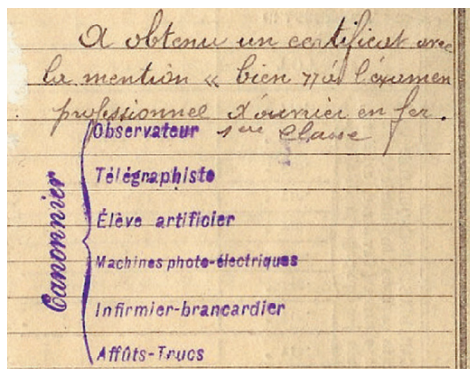 A obtenu un certificat avec
la mention « bien » à l'éxamen
professionnel d'ouvrier en fer.
Observateur 1ère Classe
Télégraphiste
Élève artificier
Canonnier
Machines photo-électriques
Infirmier-brancardier
Affûts-Trucs